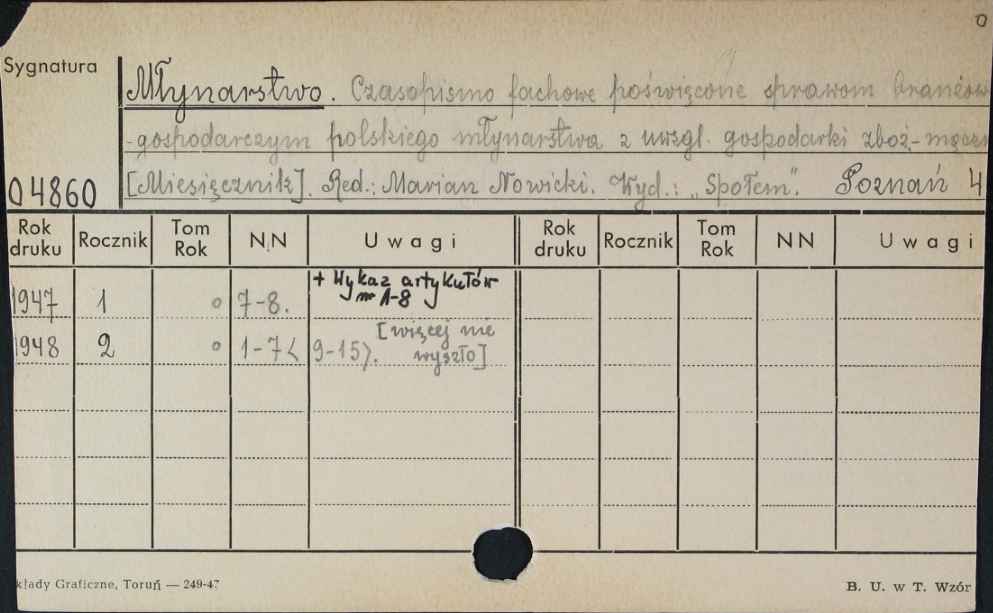 0
Sygnatura
Młynarstwo. Czasopismo fachowe poświęcone sprawom branżow
-gospodarczym polskiego młynarstwa z uwzgl. gospodarki zboż.-mącz
04860 [Miesięcznik]. Red.: Marian Nowicki. Wyd.: „Społem". Poznań 4
Rok druku Rocznik Tom Rok NN Uwagi Rok druku Rocznik Tom Rok NN Uwagi
1947 1 0 7-8. + Wykaz artykułów nr 1-8
1948 2 0 1-7< 9-15>. [więcej nie wyszło]
kłady Graficzne, Toruń — 249-47
B. U. w T. Wzór